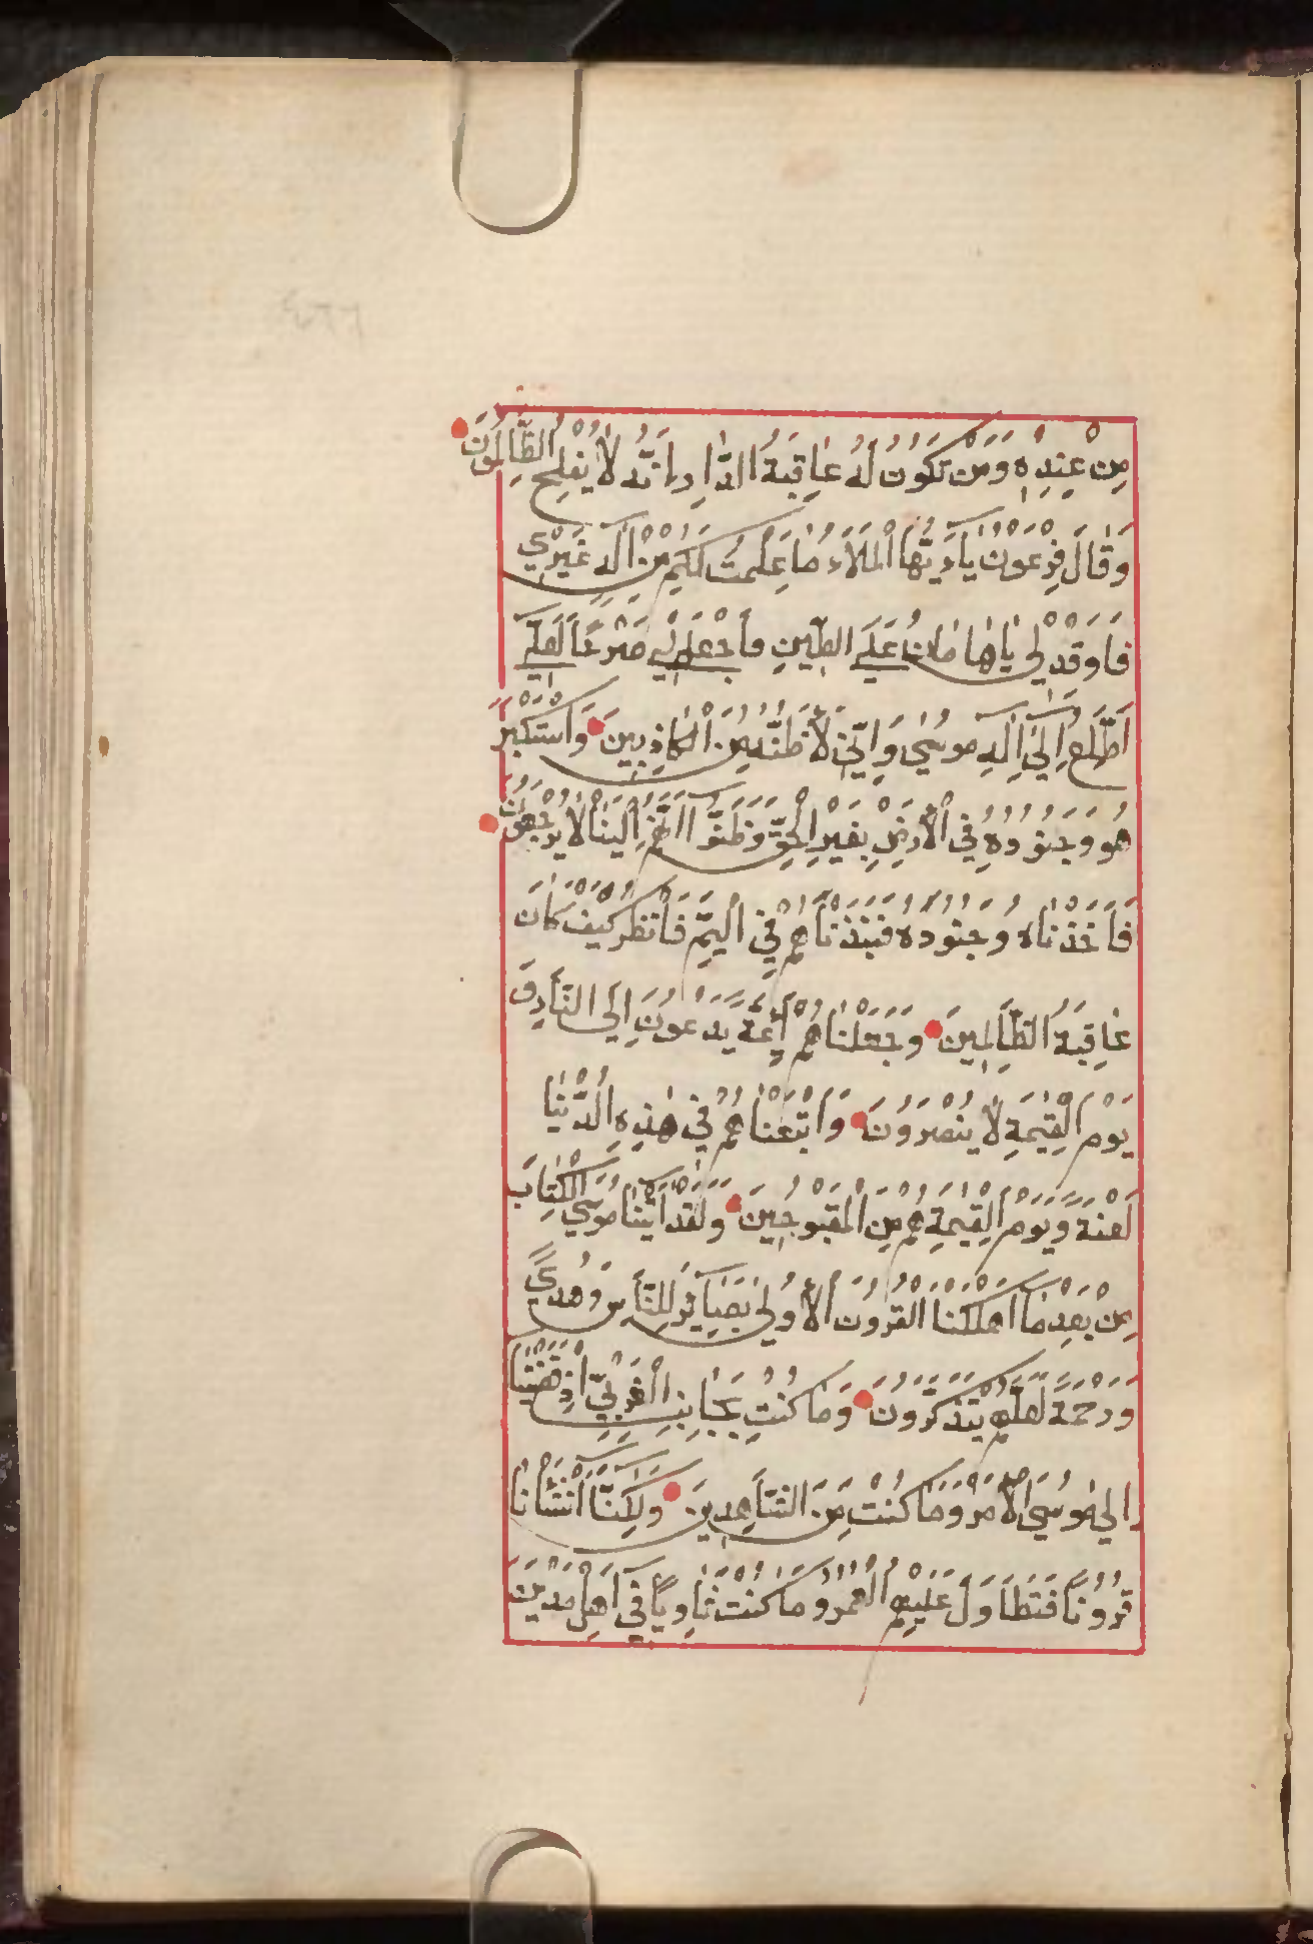 مِنْ عِنْدِهِ وَمَنْ تَكُونُ لَهُ عَاقِبَةُ الدَّارِ اِنَّهُ لَا يُفْلِحُ الظَّالِمُونَ
وَقَالَ فِرْعَوْنُ يَا اَيُّهَا الْمَلَاءُ مَا عَلِمْتُ لَكُمْ مِنْ اِلَهٍ غَيْرِي
فَاَوْقِدْ لِي يَا هَامَانُ عَلَي الطِّينِ فَاجْعَلْ لِي صَرْحًا لَعَلِّي
اَطَّلِعُ اِلَي اِلَهِ مُوسَي وَاِنِّي لَأَظُنُّهُ مِنَ الْكَاذِبِينَ وَاسْتَكْبَرَ
هُوَ وَجُنُودُهُ فِي الْأَرْضِ بِغَيْرِ الْحَقِّ وَظَنُّوا اَنَّهُمْ اِلَيْنَا لَا يُرْجَعُونَ
فَاَخَذْنَاهُ وَجُنُودَهُ فَنَبَذْنَاهُمْ فِي الْيَمِّ فَانْظُرْ كَيْفَ كَانَ
عَاقِبَةُ الظَّالِمِينَ وَجَعَلْنَاهُمْ اَئِمَّةً يَدْعُونَ اِلَي النَّارِ وَ
يَوْمَ الْقِيٰمَةِ لَا يُنْصَرُونَ وَاَتْبَعْنَاهُمْ فِي هٰذِهِ الدُّنْيَا
لَعْنَةً وَيَوْمَ الْقِيٰمَةِ هُمْ مِنَ الْمَقْبُوحِينَ وَلَقَدْ اٰتَيْنَا مُوسَي الْكِتَابَ
مِنْ بَعْدِ مَا اَهْلَكْنَا الْقُرُونَ الْأُولَي بَصَايِرَ لِلنَّاسِ وَهُدًي
وَرَحْمَةً لَعَلَّهُمْ يَتَذَكَّرُونَ وَمَا كُنْتَ بِجَانِبِ الْغَرْبِيِّ اِذْ قَضَيْنَا
اِلَي مُوسَي الْأَمْرَ وَمَا كُنْتَ مِنَ الشَّاهِدِينَ وَلٰكِنَّا اَنْشَأْنَا
قُرُونًا فَتَطَاوَلَ عَلَيْهِمُ الْعُمُرُ وَمَا كُنْتَ ثَاوِيًا فِي اَهْلِ مَدْيَنَ